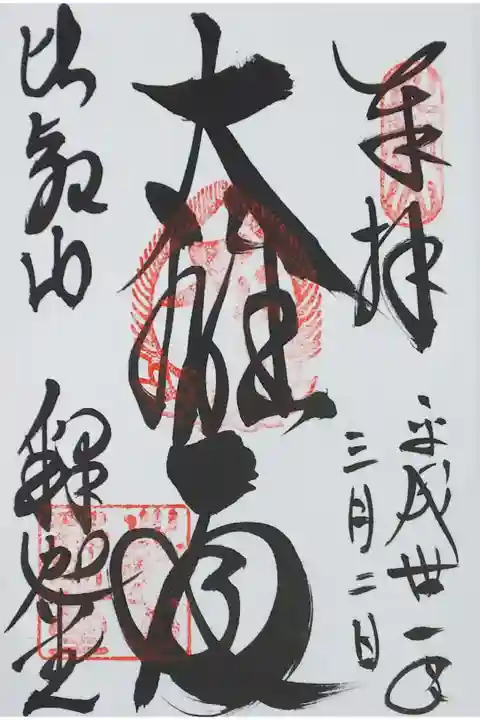 奉拝
平成卅一年
三月二日
大雄殿
比叡山
釈迦堂